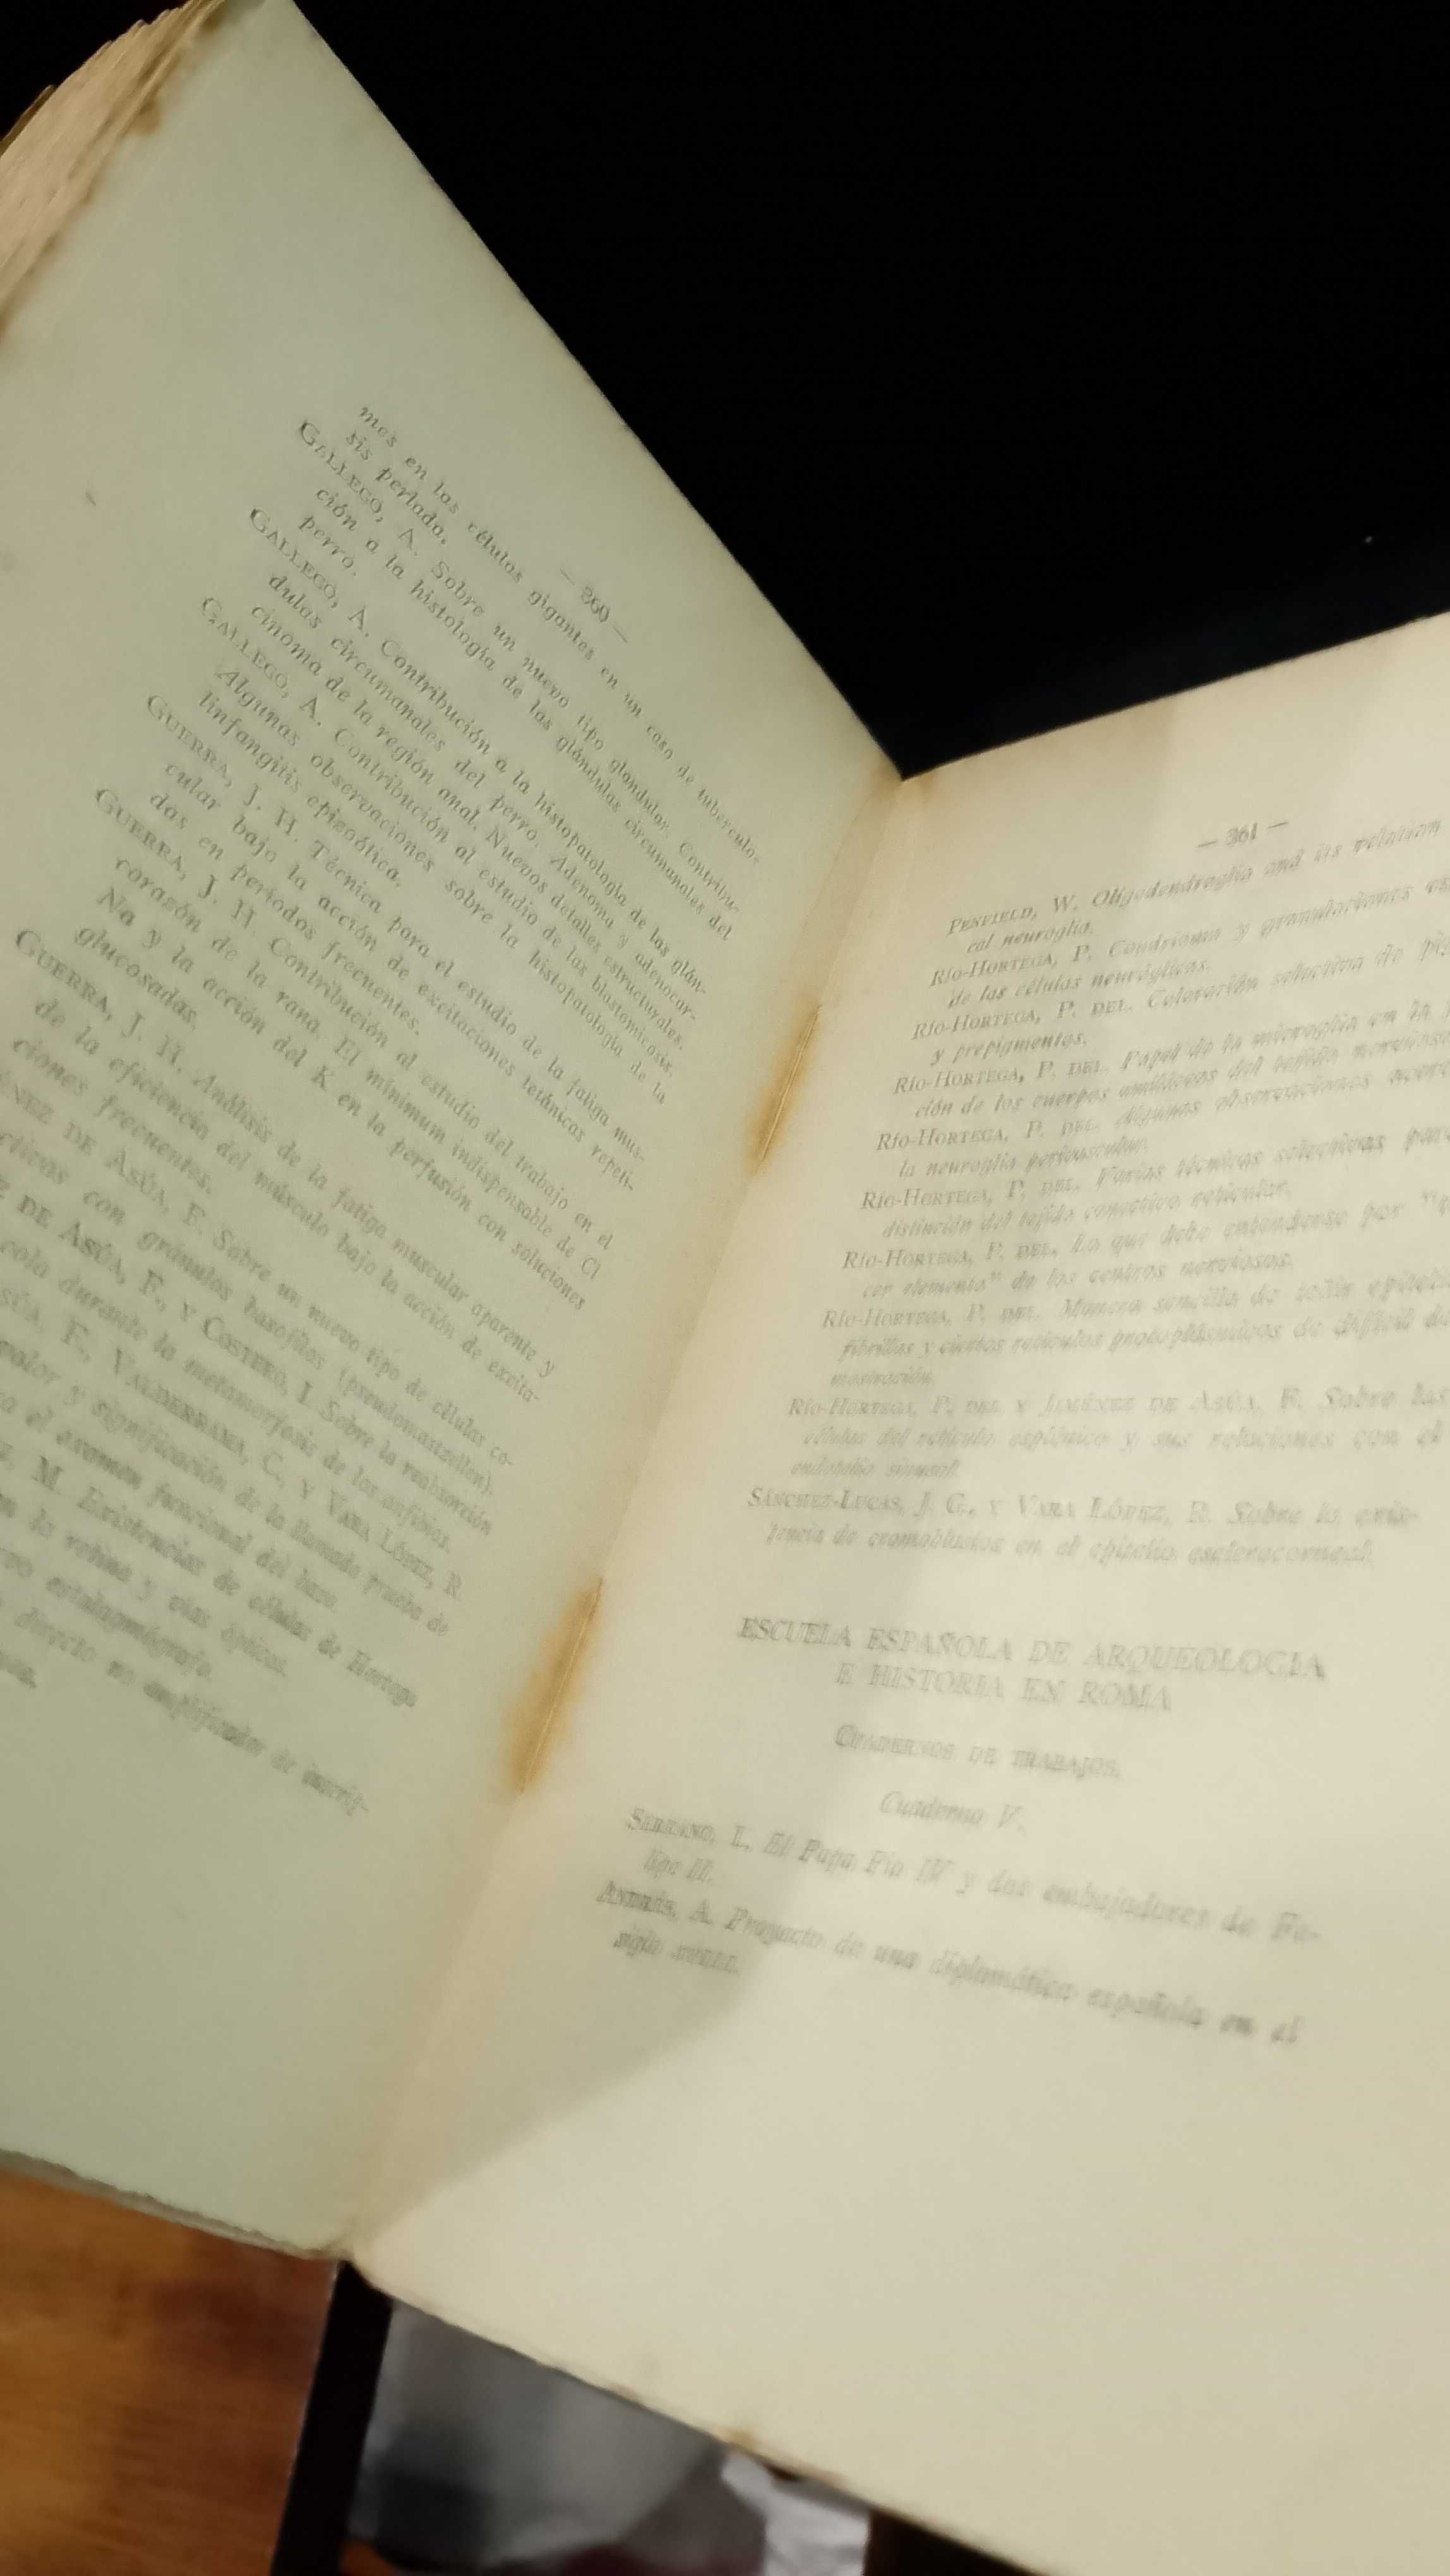 — 360 —
mes en las células gigantes en un caso de tuberculo-
sis perlada.
GALLEGO, A. Sobre un nuevo tipo glandular. Contribu-
ción a la histología de las glándulas circumanales del
perro.
GALLEGO, A. Contribución a la histopatología de las glán-
dulas circumanales del perro. Adenoma y adenocar-
cinoma de la región anal. Nuevos detalles estructurales.
GALLEGO, A. Contribución al estudio de las blastomicosis.
Algunas observaciones sobre la histopatología de la
linfangitis epizoótica.
GUERRA, J. H. Técnica para el estudio de la fatiga mus-
cular bajo la acción de excitaciones tetánicas repeti-
das en períodos frecuentes.
GUERRA, J. H. Contribución al estudio del trabajo en el
corazón de la rana. El mínimum indispensable de Cl
Na y la acción del K en la perfusión con soluciones
glucosadas.
GUERRA, J. H. Análisis de la fatiga muscular aparente y
de la eficiencia del músculo bajo la acción de excita-
ciones frecuentes.
DE ASÚA, F. Sobre un nuevo tipo de células co-
con gránulos basófilos (pseudomastzellen).
DE ASÚA, F., Y COSTERO, I. Sobre la reabsorción
durante la metamorfosis de los anfibios.
F., VALDERRAMA, C., Y VARA LÓPEZ, R.
valor y significación de la llamada prueba de
el examen funcional del bazo.
M. Existencias de células de Hortega
en la retina y vías ópticas.
estalagmógrafo.
directo no amplificador de inscrip-
— 361 —
PENFIELD, W. Oligodendroglia and its relation
cal neuroglia.
RÍO-HORTEGA, P. Condrioma y granulaciones
de las células neuróglicas.
RÍO-HORTEGA, P. DEL. Coloración selectiva de
y prepigmentos.
RÍO-HORTEGA, P. DEL. Papel de la microglia en la
ción de los cuerpos amiláceos del tejido nervioso
RÍO-HORTEGA, P. DEL. Algunas observaciones acerca
la neuroglia perivascular.
RÍO-HORTEGA, P. DEL. Varias técnicas selectivas para
distinción del tejido conectivo reticular.
RÍO-HORTEGA, P. DEL. Lo que debe entenderse por
cer elemento" de los centros nerviosos.
RÍO-HORTEGA, P. DEL. Manera sencilla de teñir
fibrillas y ciertos retículos protoplásmicos de difícil
mostración.
RÍO-HORTEGA, P. DEL Y JIMÉNEZ DE ASÚA, F. Sobre las
células del retículo esplénico y sus relaciones con el
endotelio sinusal.
SÁNCHEZ-LUCAS, J. G., Y VARA LÓPEZ, R. Sobre la exis-
tencia de cromoblastos en el epitelio esclerocorneal.
ESCUELA ESPAÑOLA DE ARQUEOLOGIA
E HISTORIA EN ROMA
CUADERNOS DE TRABAJOS.
Cuaderno V.
SERRANO, L. El Papa Pío IV y dos embajadores de Fe-
lipe II.
ANDRÉS, A. Proyecto de una diplomática española en el
siglo XVIII.